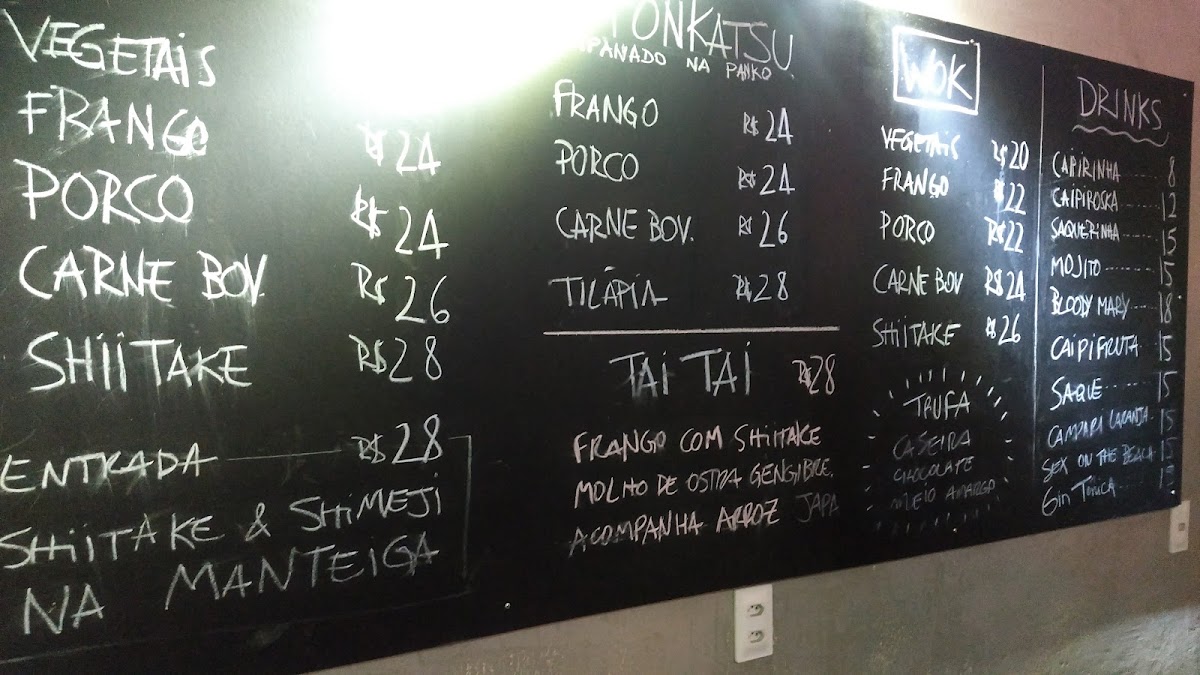 VEGETAIS
FRANGO R$ 24
PORCO R$ 24
CARNE BOV. R$ 26
SHIITAKE R$ 28
ENTRADA R$ 28
SHIITAKE & SHIMEJI
NA MANTEIGA
TONKATSU
NA PANKO
FRANGO R$ 24
PORCO R$ 24
CARNE BOV. R$ 26
TILÁPIA R$ 28
TAI TAI R$ 28
FRANGO COM SHIITAKE
MOLHO DE OSTRA GENGIBRE.
ACOMPANHA ARROZ JAPA
WOK
VEGETAIS R$ 20
FRANGO R$ 22
PORCO R$ 22
CARNE BOV R$ 24
SHIITAKE R$ 26
TRUFA
CASEIRA
CHOCOLATE
MEIO AMARGO
DRINKS
CAIPIRINHA 8
CAIPIROSKA 12
SAQUERINHA 15
MOJITO 15
BLOODY MARY 18
CAIPIFRUTA 15
SAQUE 15
CAMPARI LARANJA 15
SEX ON THE BEACH 15
Gin Tonica 15